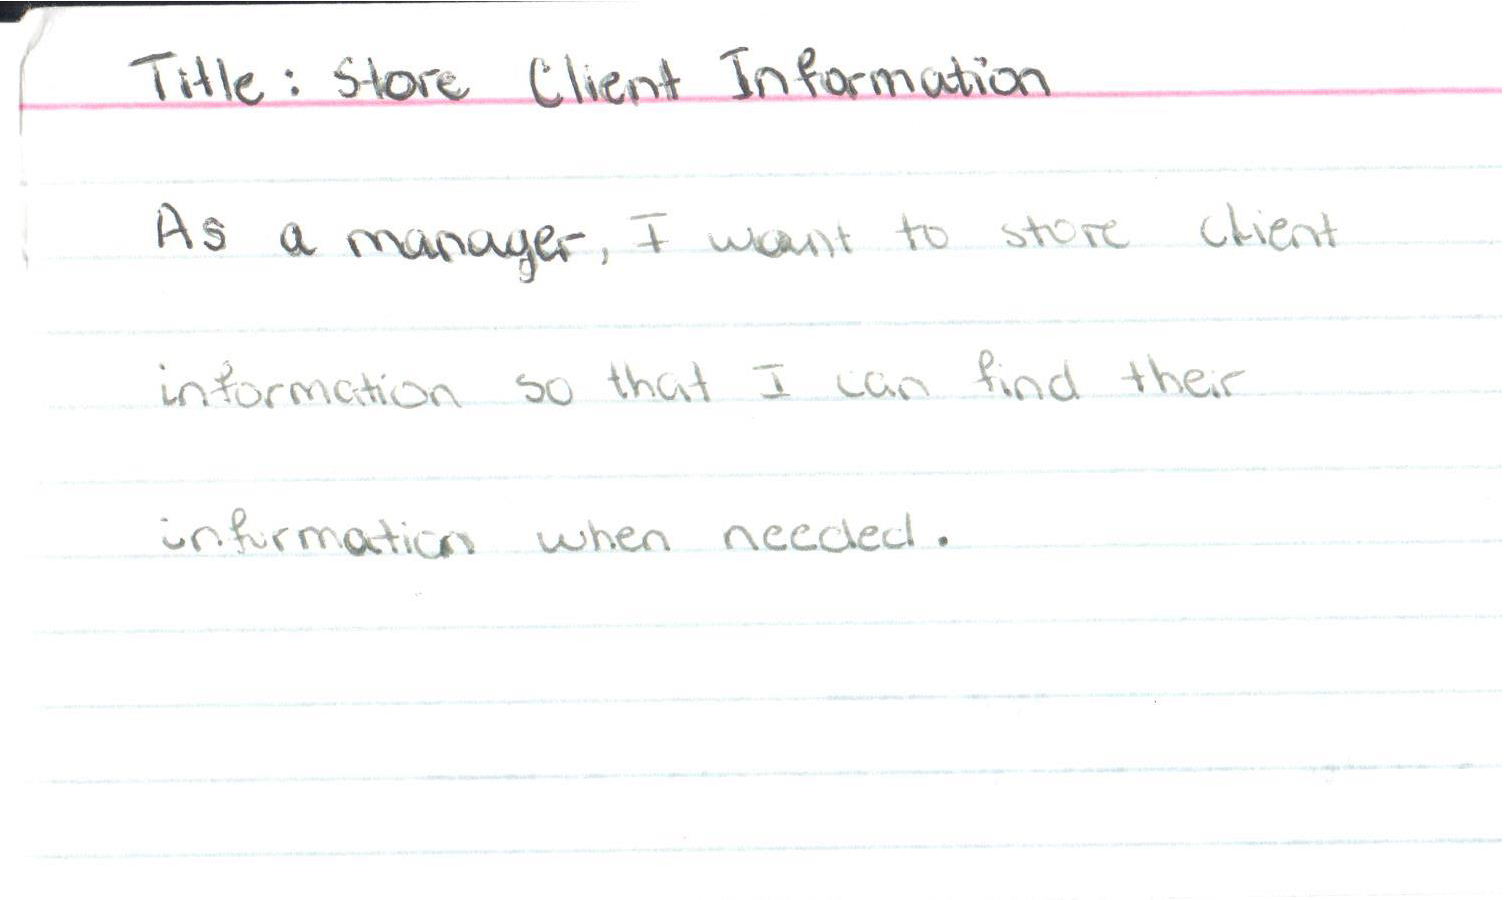 Title: Store Client Information
As a manager, I want to store client
information so that I can find their
information when needed.